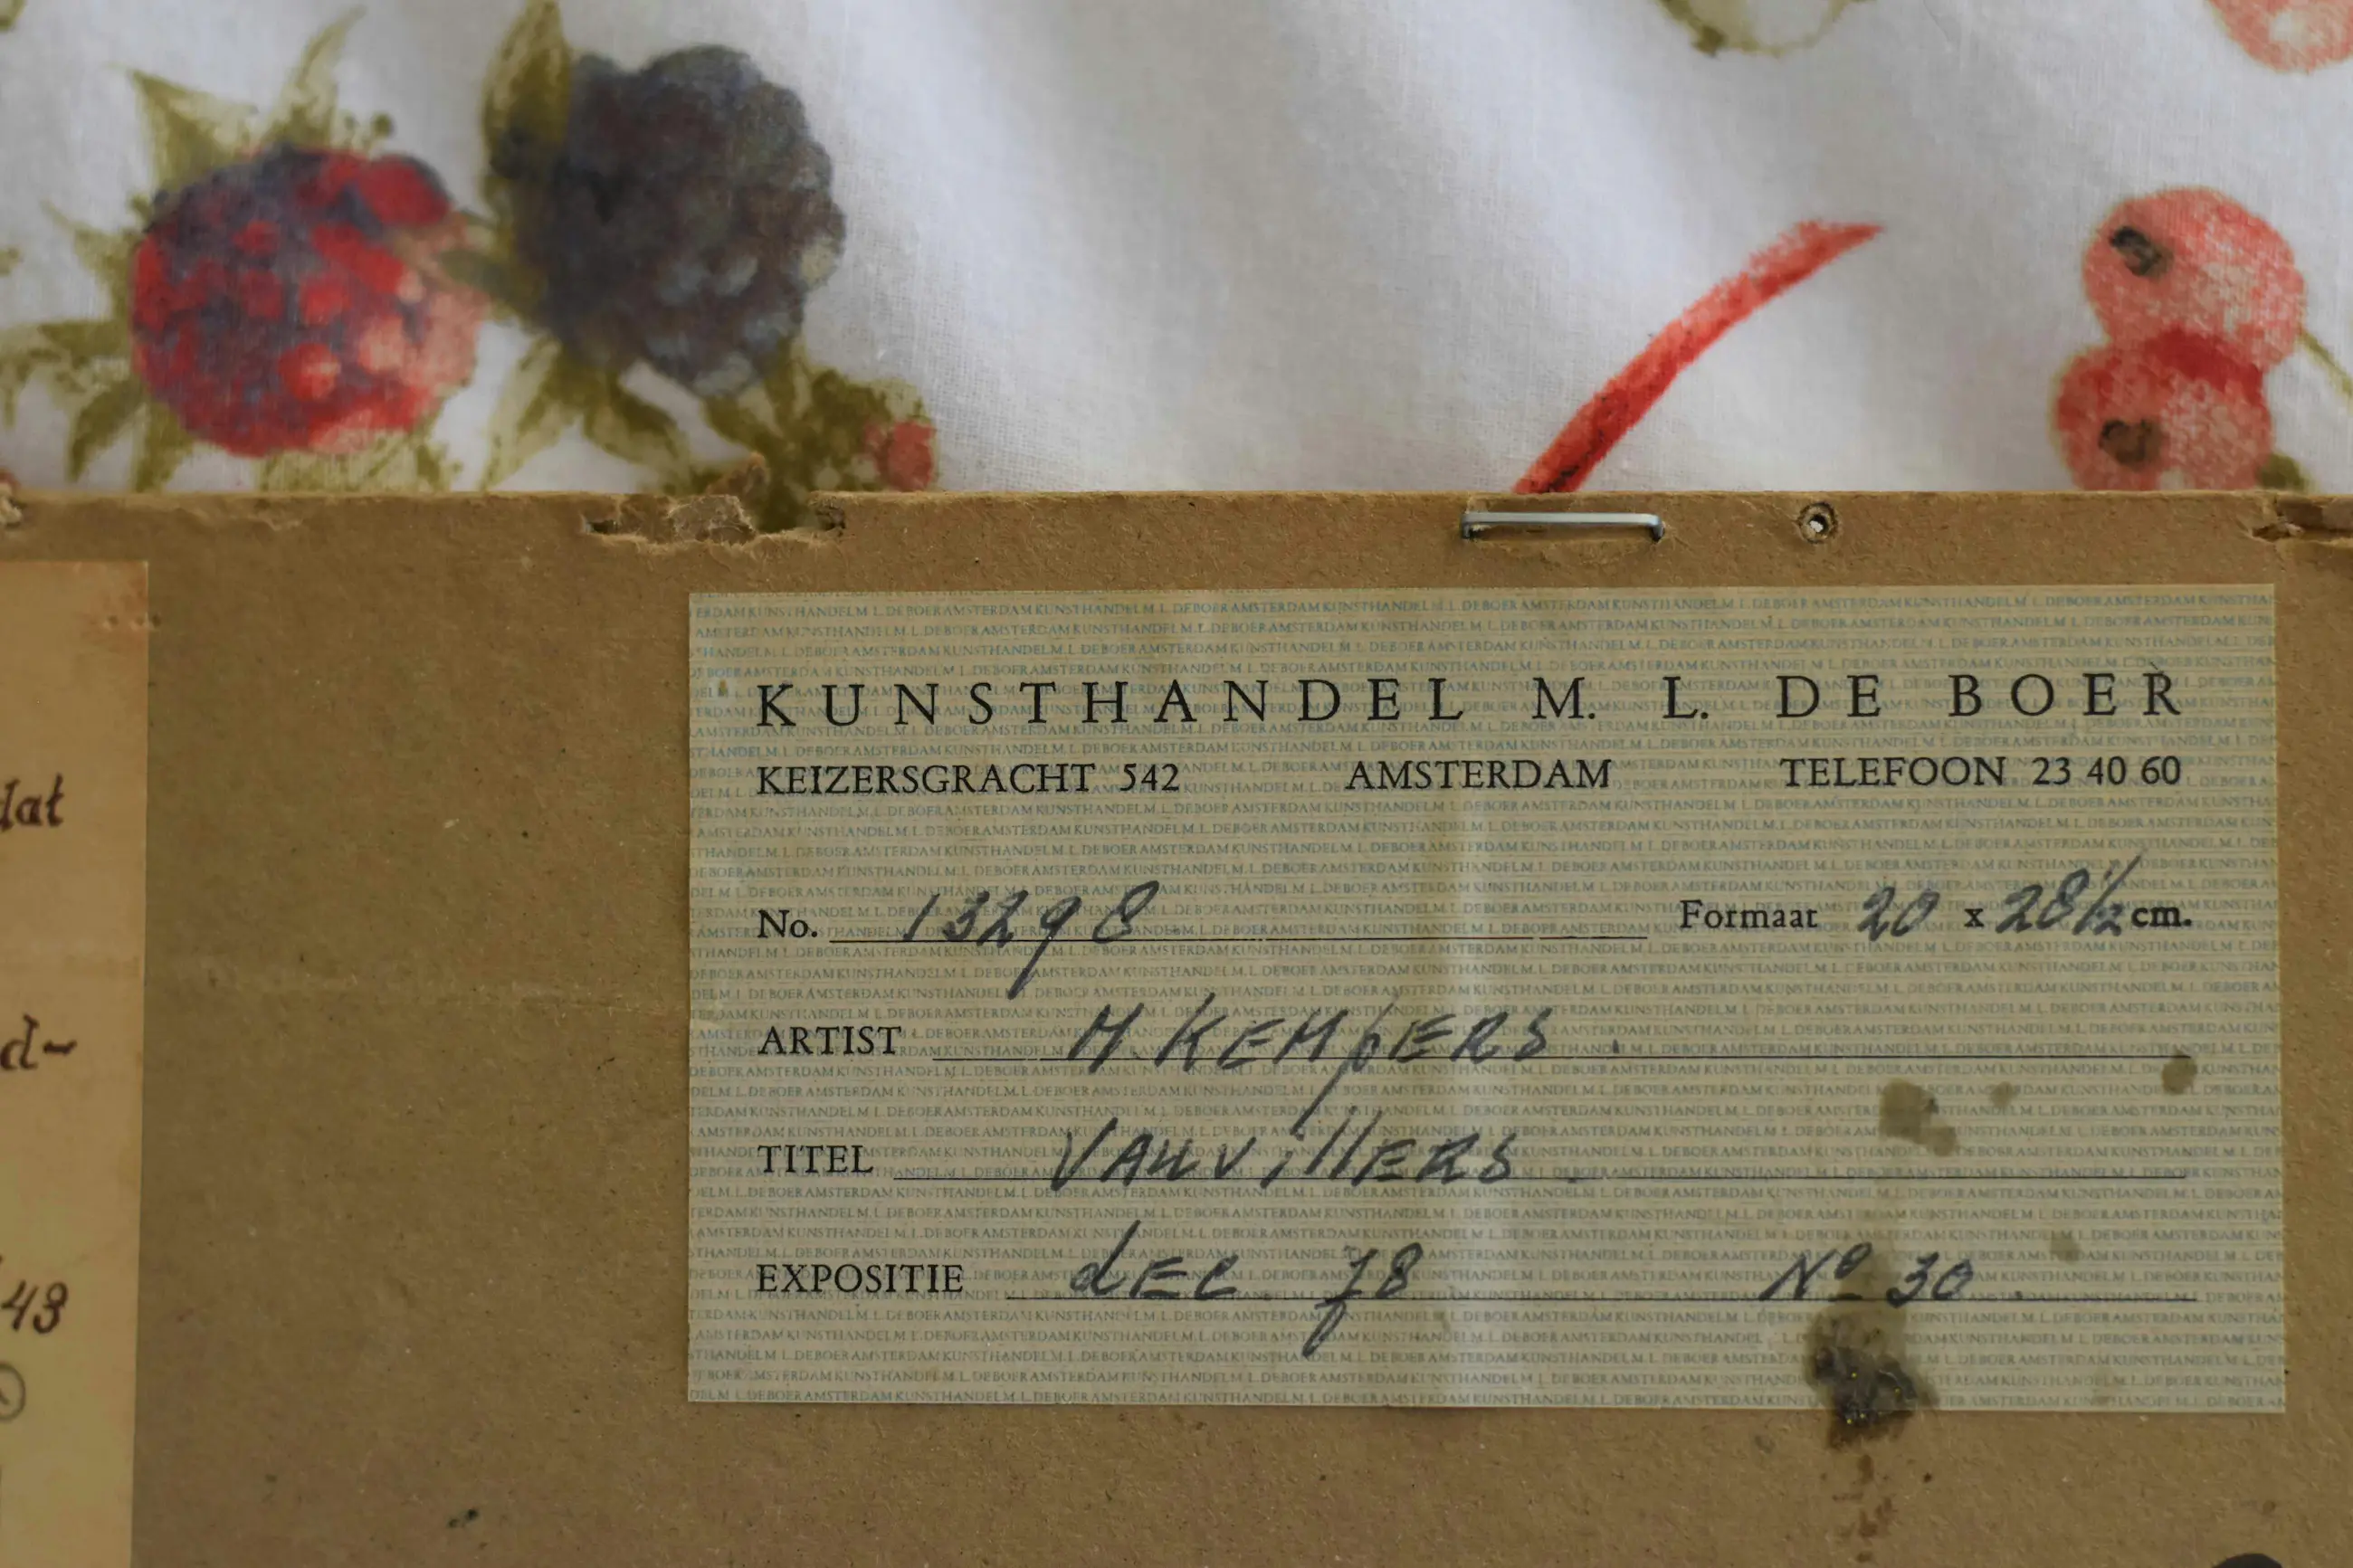 KUNSTHANDEL M. L. DE BOER
KEIZERSGRACHT 542 AMSTERDAM TELEFOON 23 40 60
No. 13298 Formaat 20 x 28 1/2 cm.
ARTIST M KEMpERS.
TITEL VAUVillERS
EXPOSITIE dEC. 78 No 30.
lat
d-
43